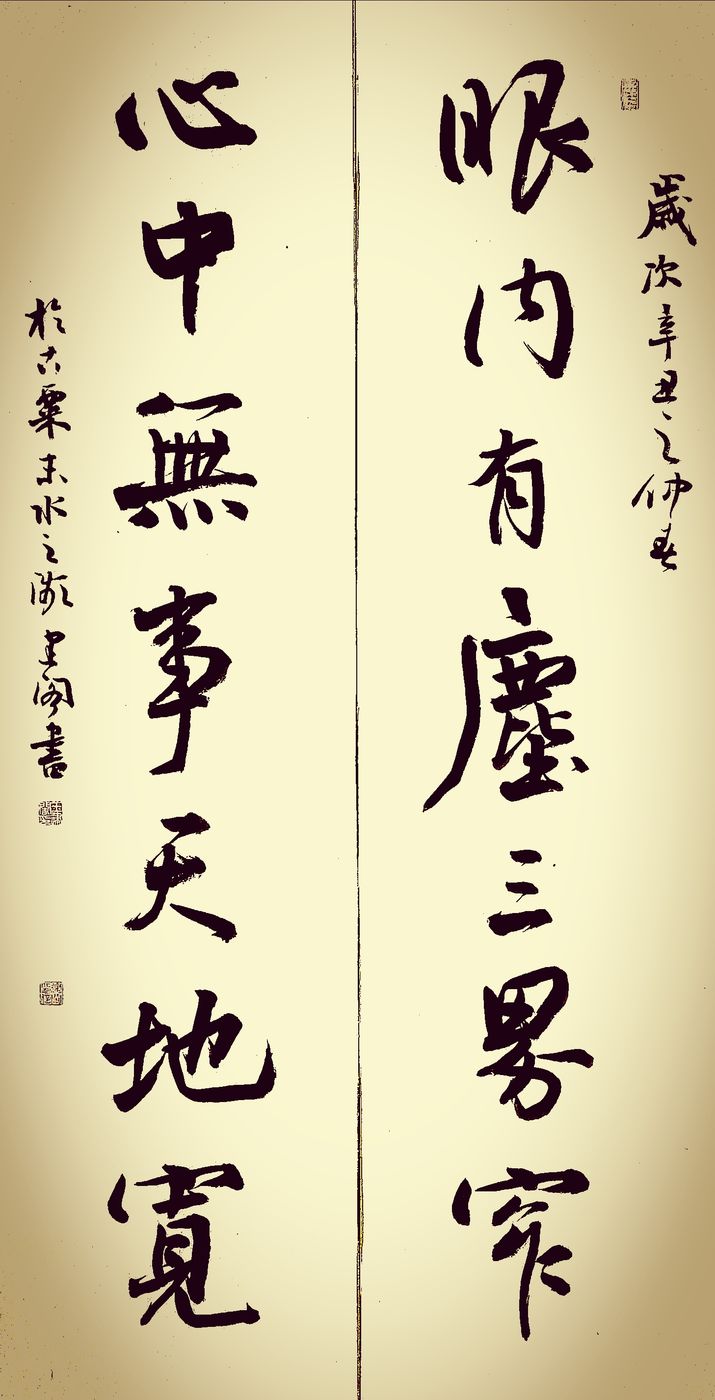 歲次辛丑之仲春
眼內有塵三界窄
心中無事天地寬
於古粟末水之濒 書